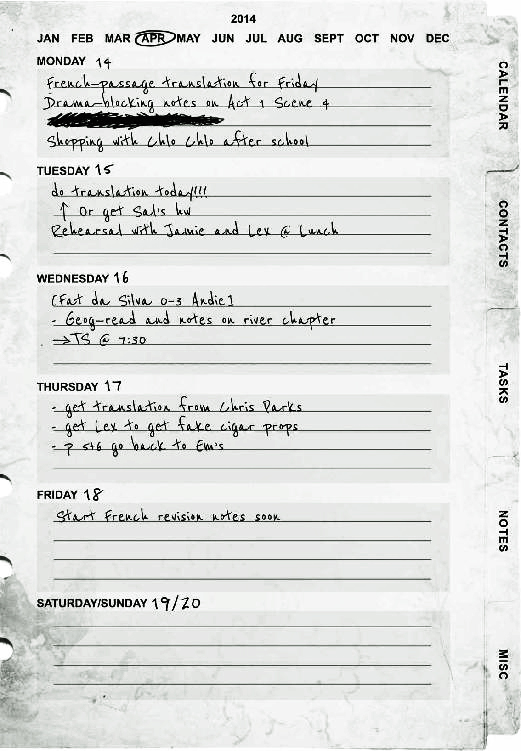 2014
JAN FEB MAR APR MAY JUN JUL AUG SEPT OCT NOV DEC
MONDAY 14
French-passage translation for Friday
Drama-blocking notes on Act 1 Scene 4
Shopping with Chlo Chlo after school
TUESDAY 15
do translation today!!!
↑ Or get Sal's hw
Rehearsal with Jamie and Lex @ Lunch
WEDNESDAY 16
[Fat da Silva 0-3 Andie]
- Geog-read and notes on river chapter
→TS @ 7:30
THURSDAY 17
- get translation from Chris Parks
- get Lex to get fake cigar props
- P 5+6 go back to Em's
FRIDAY 18
Start French revision notes soon
SATURDAY/SUNDAY 19/20
CALENDAR
CONTACTS
TASKS
NOTES
MISC